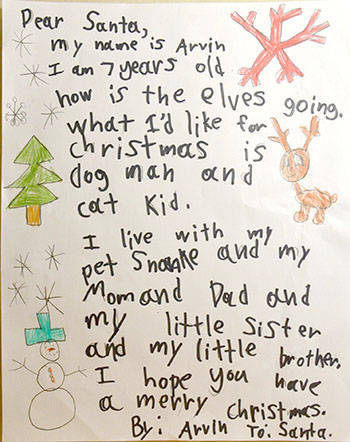 Dear Santa,
my name is Arvin
I am 7 years old
how is the elves going.
what I'd like for
christmas is
dog man and
cat Kid.
I live with my
pet Snake and my
Mom and Dad and
my little Sister
and my little brother.
I hope you have
a merry christmas.
By: Arvin To: Santa.